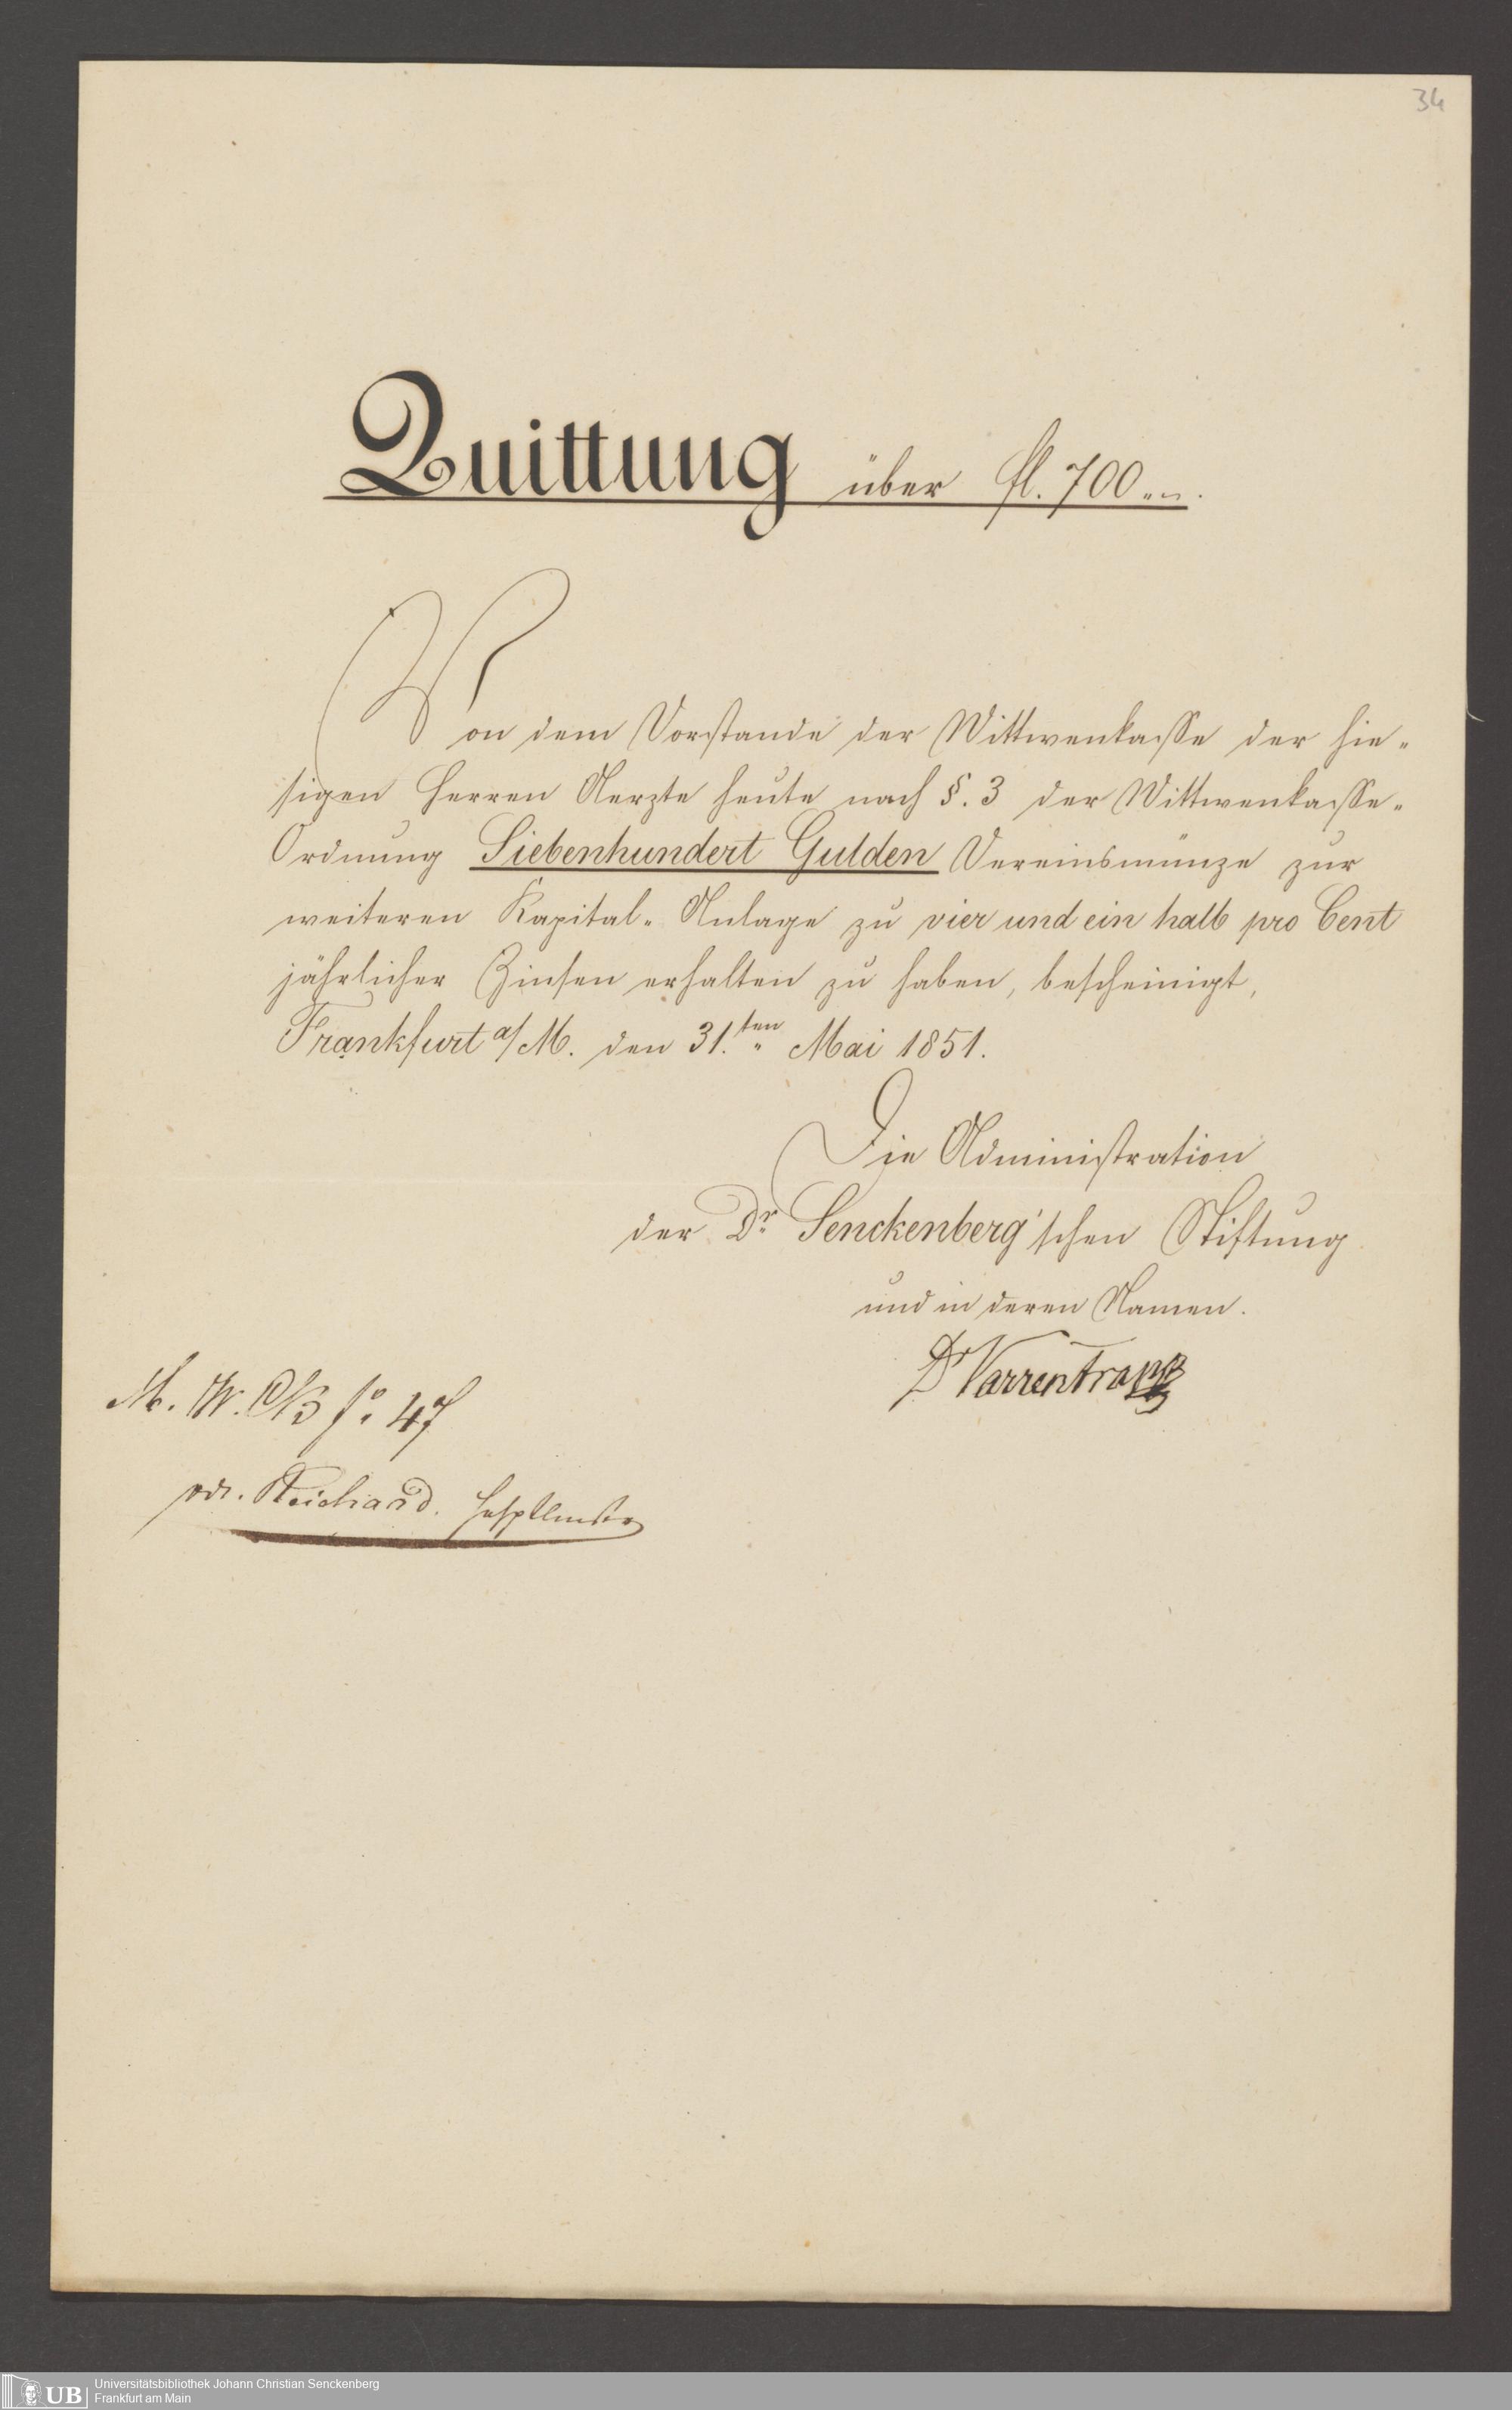 34
Quittung über fl. 700.„.
Von dem Vorstande der Wittwenkasse der hie-
sigen Herren Aerzte heute nach §. 3 der Wittwenkasse-
Ordnung Siebenhundert Gulden Vereinsmünze zur
weiteren Kapital-Anlage zu vier und ein halb pro Cent
jährlicher Zinsen erhalten zu haben, bescheinigt,
Frankfurt a/M. den 31.ten Mai 1851.
Die Administration
der Dr. Senckenberg'schen Stiftung
und in deren Namen.
Dr Varrentrapp
fo. 47
Reichard.
UB Universitätsbibliothek Johann Christian Senckenberg
Frankfurt am Main